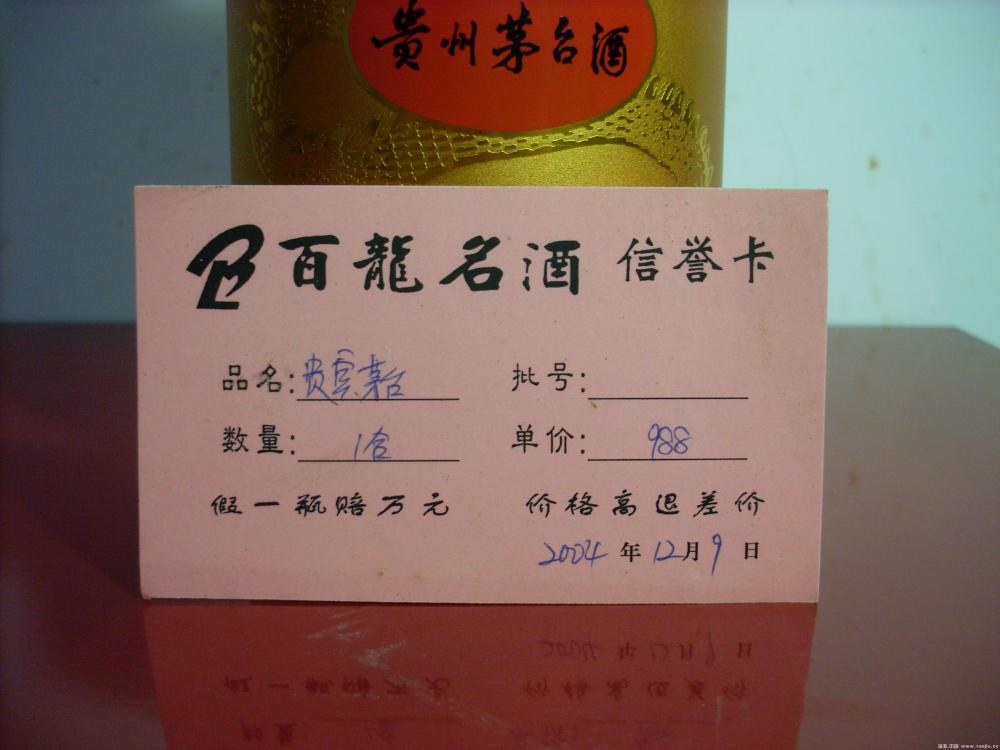 貴州茅台酒
百龍名酒 信誉卡
品名: 贵宾茅台 批号:
数量: 1合 单价: 988
假一瓶赔万元 价格高退差价
2004年12月9日